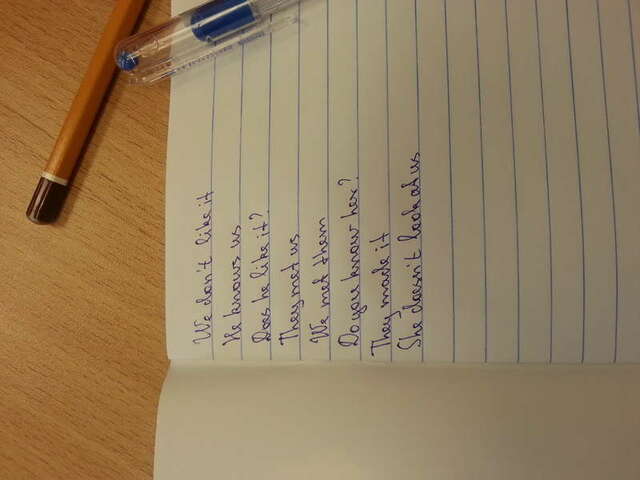 We don't like it
He knows us
Does he like it?
They met us
We met them
Do you know her?
They made it
She doesn't look at us